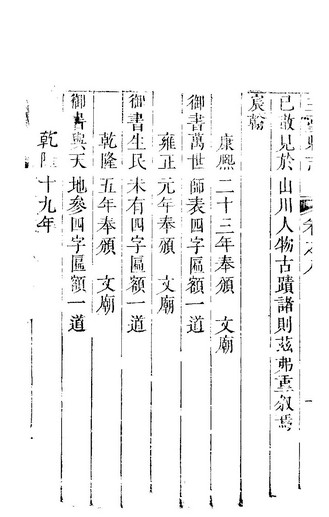 已散見於山川人物古蹟諸則茲弗重叙焉
宸翰
康熙二十三年奉頒　文廟
御書萬世師表四字匾額一道
雍正元年奉頒　文廟
御書生民未有四字匾額一道
乾隆五年奉頒　文廟
御書與天地參四字匾額一道
乾隆十九年